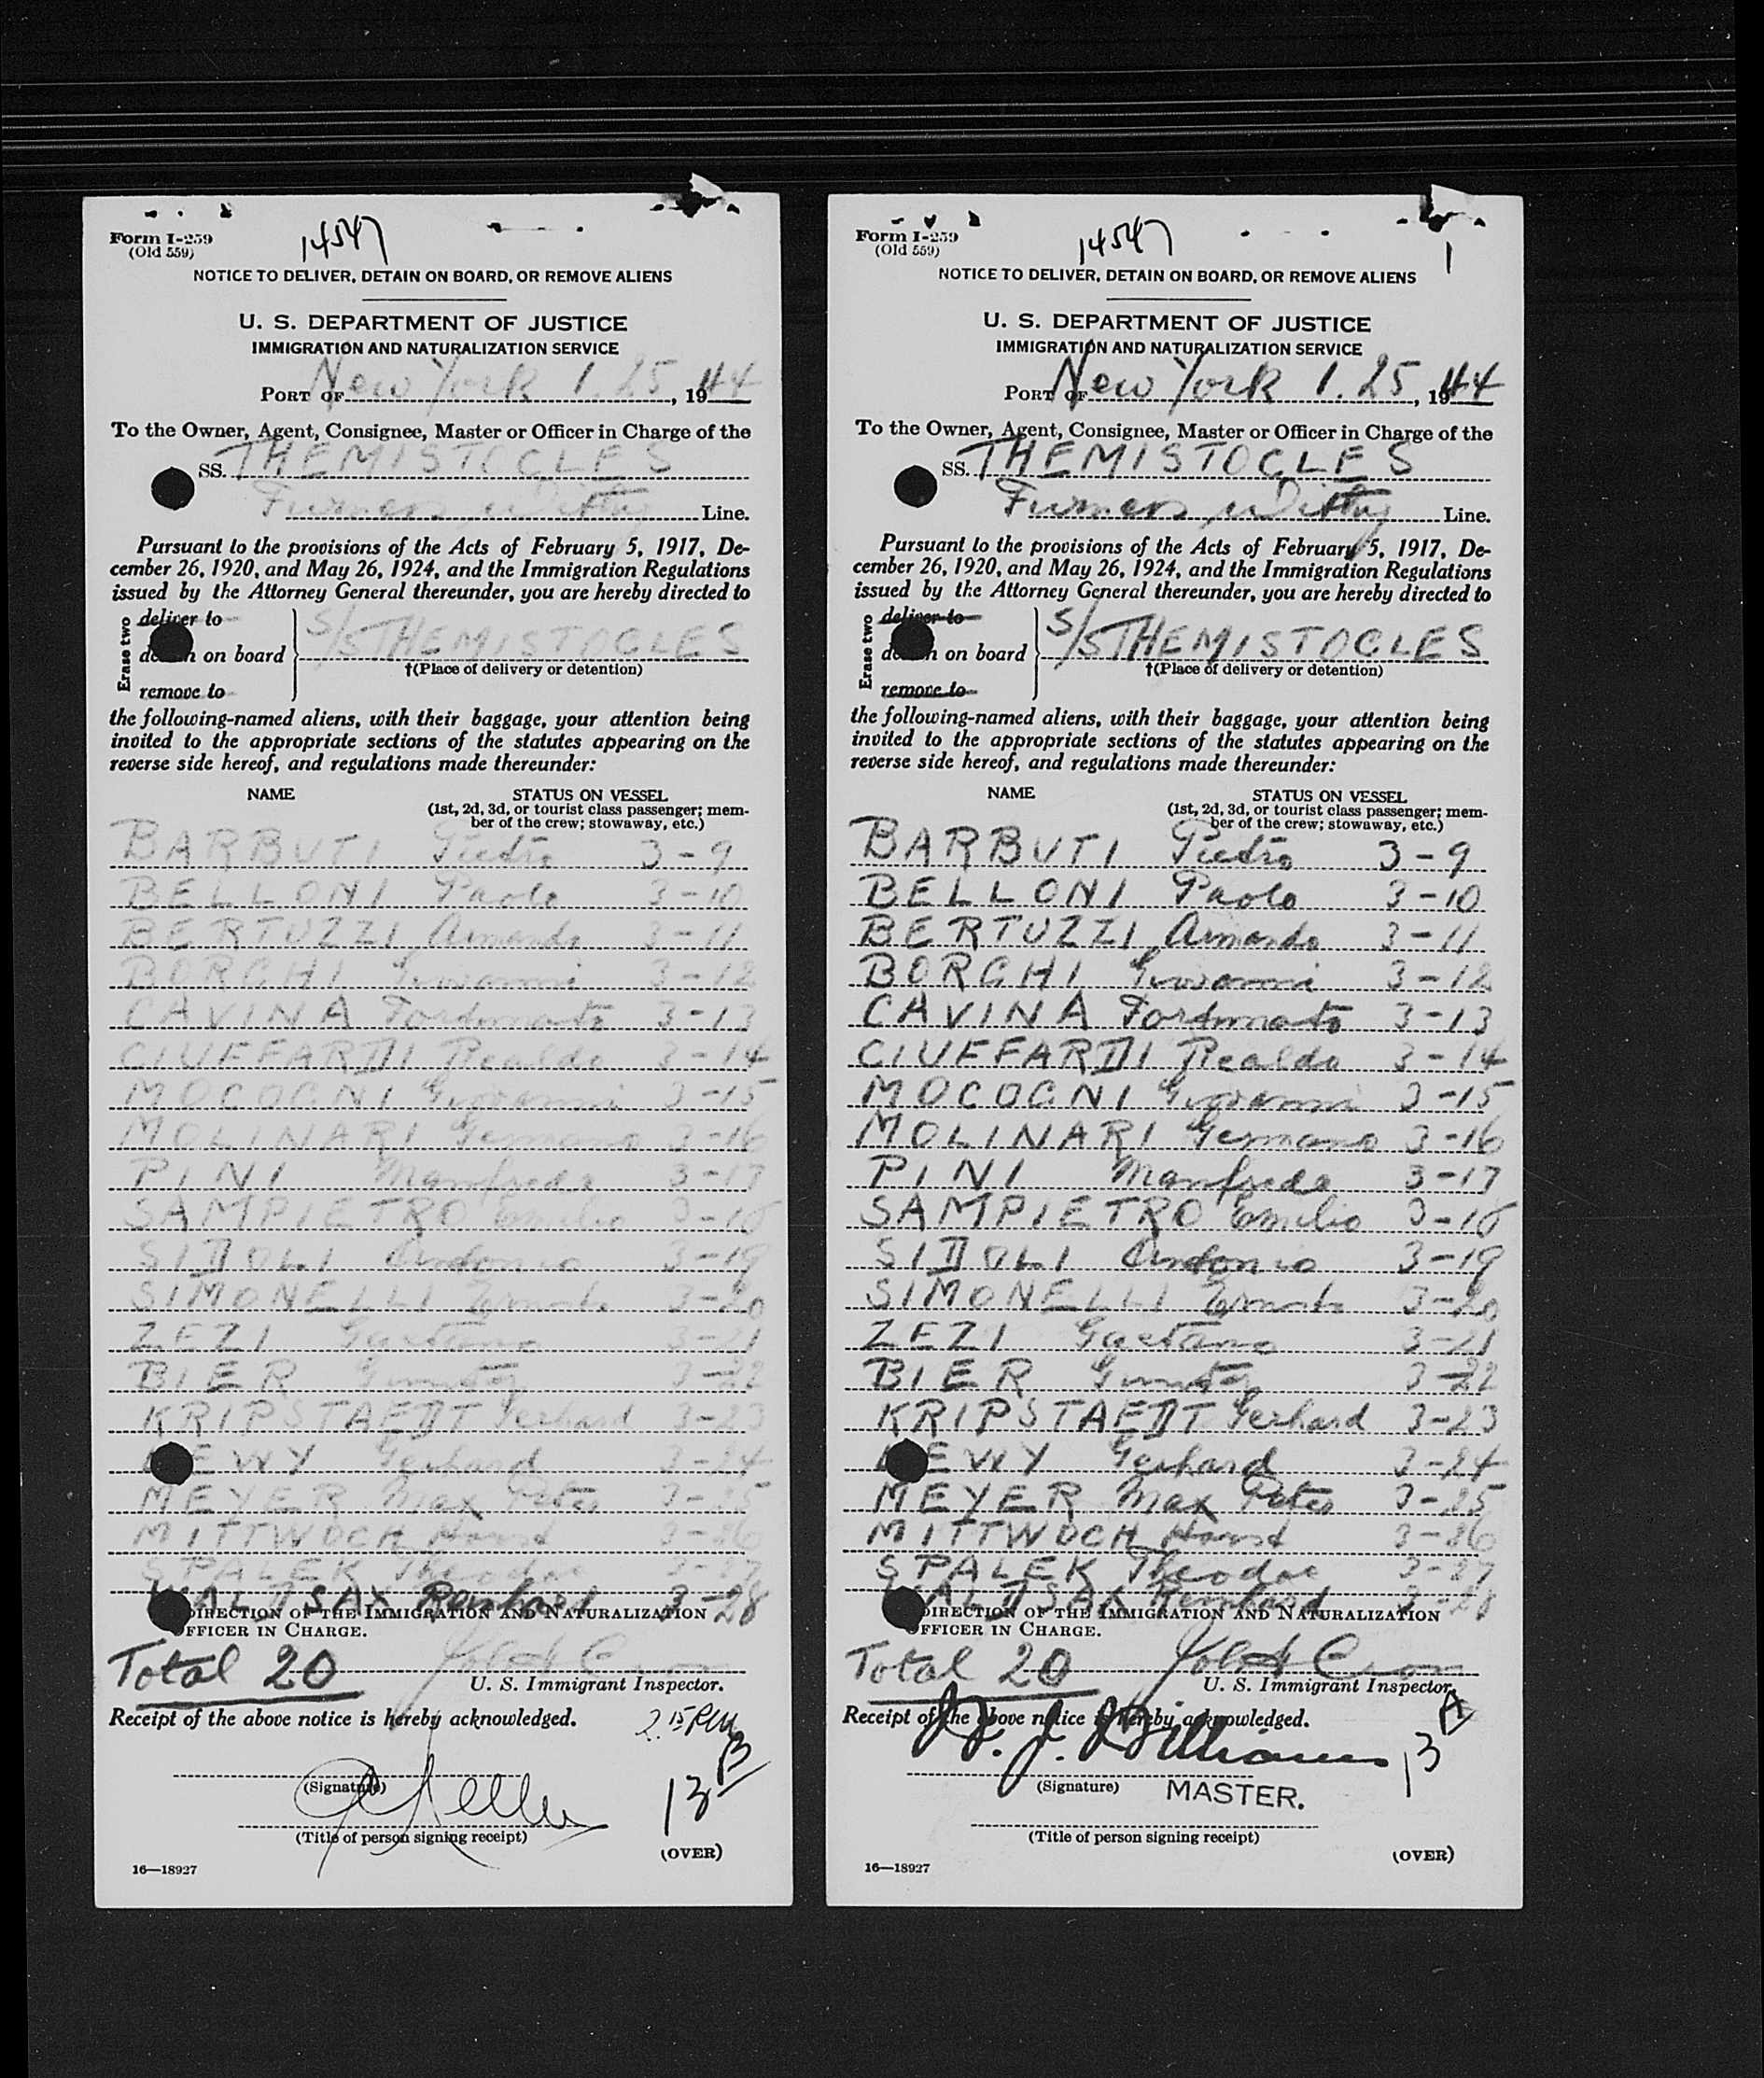 Form I-259
(Old 559)
14547
NOTICE TO DELIVER, DETAIN ON BOARD, OR REMOVE ALIENS
U. S. DEPARTMENT OF JUSTICE
IMMIGRATION AND NATURALIZATION SERVICE
PORT OF New York 1. 25, 1944
To the Owner, Agent, Consignee, Master or Officer in Charge of the
SS. THEMISTOCLES
Furness Withy Line.
Pursuant to the provisions of the Acts of February 5, 1917, De-
cember 26, 1920, and May 26, 1924, and the Immigration Regulations
issued by the Attorney General thereunder, you are hereby directed to
Erase two
deliver to
on board
remove to
S/S THEMISTOCLES
†(Place of delivery or detention)
the following-named aliens, with their baggage, your attention being
invited to the appropriate sections of the statutes appearing on the
reverse side hereof, and regulations made thereunder:
NAME STATUS ON VESSEL
(1st, 2d, 3d, or tourist class passenger; mem-
ber of the crew; stowaway, etc.)
BARBUTI Pietro 3-9
BELLONI Paolo 3-10
BERTUZZI Armando 3-11
BORGHI Giovanni 3-12
CAVINA Fortunato 3-13
CIUFFARDI Realdo 3-14
MOCOGNI Giovanni 3-15
MOLINARI Germano 3-16
PINI Manfredo 3-17
SAMPIETRO Emilio 3-18
SIDOLI Antonio 3-19
SIMONELLI Ernesto 3-20
ZEZI Gaetano 3-21
BIER 3-22
KRIPSTAEDT Gerhard 3-23
EWY Gerhard 3-24
MEYER Max Peter 3-25
MITTWOCH Horst 3-26
SPALEK Theodor 3-27
WALDSAX Reinhard 3-28
DIRECTION OF THE IMMIGRATION AND NATURALIZATION
OFFICER IN CHARGE.
Total 20
U. S. Immigrant Inspector.
Receipt of the above notice is hereby acknowledged.
2.15 PM
(Signature)
13 B
(Title of person signing receipt)
(OVER)
16—18927
Form I-259
(Old 559)
14547
1
NOTICE TO DELIVER, DETAIN ON BOARD, OR REMOVE ALIENS
U. S. DEPARTMENT OF JUSTICE
IMMIGRATION AND NATURALIZATION SERVICE
PORT OF New York 1. 25, 1944
To the Owner, Agent, Consignee, Master or Officer in Charge of the
SS. THEMISTOCLES
Furness Withy Line.
Pursuant to the provisions of the Acts of February 5, 1917, De-
cember 26, 1920, and May 26, 1924, and the Immigration Regulations
issued by the Attorney General thereunder, you are hereby directed to
Erase two
deliver to
on board
remove to
S/S THEMISTOCLES
†(Place of delivery or detention)
the following-named aliens, with their baggage, your attention being
invited to the appropriate sections of the statutes appearing on the
reverse side hereof, and regulations made thereunder:
NAME STATUS ON VESSEL
(1st, 2d, 3d, or tourist class passenger; mem-
ber of the crew; stowaway, etc.)
BARBUTI Pietro 3-9
BELLONI Paolo 3-10
BERTUZZI Armando 3-11
BORGHI Giovanni 3-12
CAVINA Fortunato 3-13
CIUFFARDI Realdo 3-14
MOCOGNI Giovanni 3-15
MOLINARI Germano 3-16
PINI Manfredo 3-17
SAMPIETRO Emilio 3-18
SIDOLI Antonio 3-19
SIMONELLI Ernesto 3-20
ZEZI Gaetano 3-21
BIER 3-22
KRIPSTAEDT Gerhard 3-23
EWY Gerhard 3-24
MEYER Max Peter 3-25
MITTWOCH Horst 3-26
SPALEK Theodor 3-27
WALDSAX Reinhard 3-28
DIRECTION OF THE IMMIGRATION AND NATURALIZATION
OFFICER IN CHARGE.
Total 20
U. S. Immigrant Inspector.
Receipt of the above notice is hereby acknowledged.
J. Williams
13 A
(Signature) MASTER.
(Title of person signing receipt)
(OVER)
16—18927